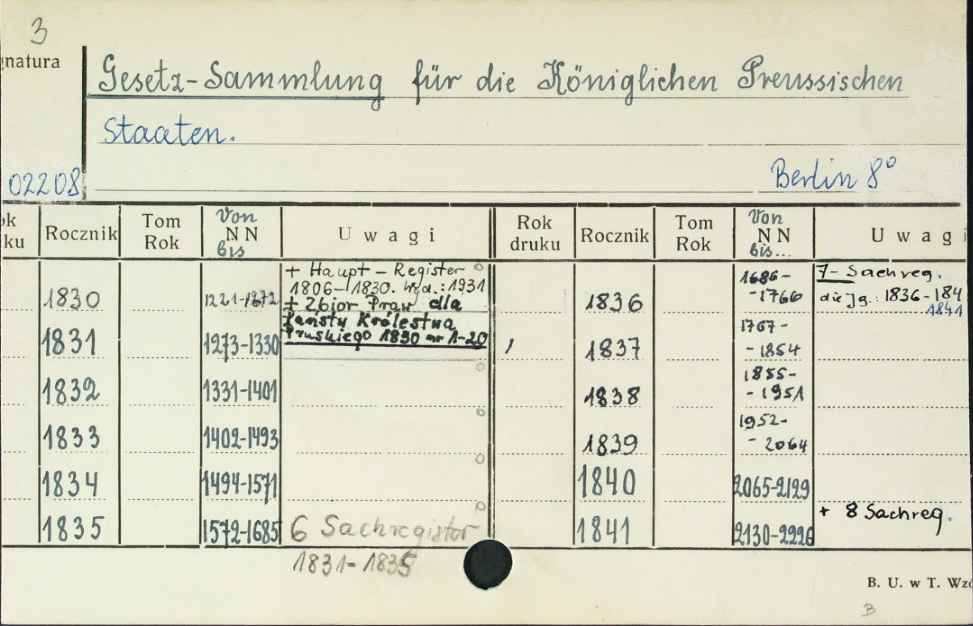 3
natura
Gesetz-Sammlung für die Königlichen Preussischen
Staaten.
02208
Berlin 8°
ok
ku
Rocznik
Tom
Rok
Von
NN
bis
Uwagi
Rok
druku
Rocznik
Tom
Rok
Von
NN
bis...
Uwagi
1830
1221-1272
+ Haupt-Register
1806-1830. wyd.: 1931
+ Zbiór Praw dla
Państw Królestwa
Pruskiego 1830 nr 1-20
1831 1273-1330
1832 1331-1401
1833 1402-1493
1834 1494-1571
1835 1572-1685 6 Sachregister
1831-1835
1836
1686-
-1766
7-Sachreg.
die Jg.: 1836-184
1841
1837
1767-
-1854
1838
1855-
-1951
1839
1952-
-2064
1840 2065-2129
1841 2130-2226 + 8 Sachreg.
B. U. w T. Wzó
B